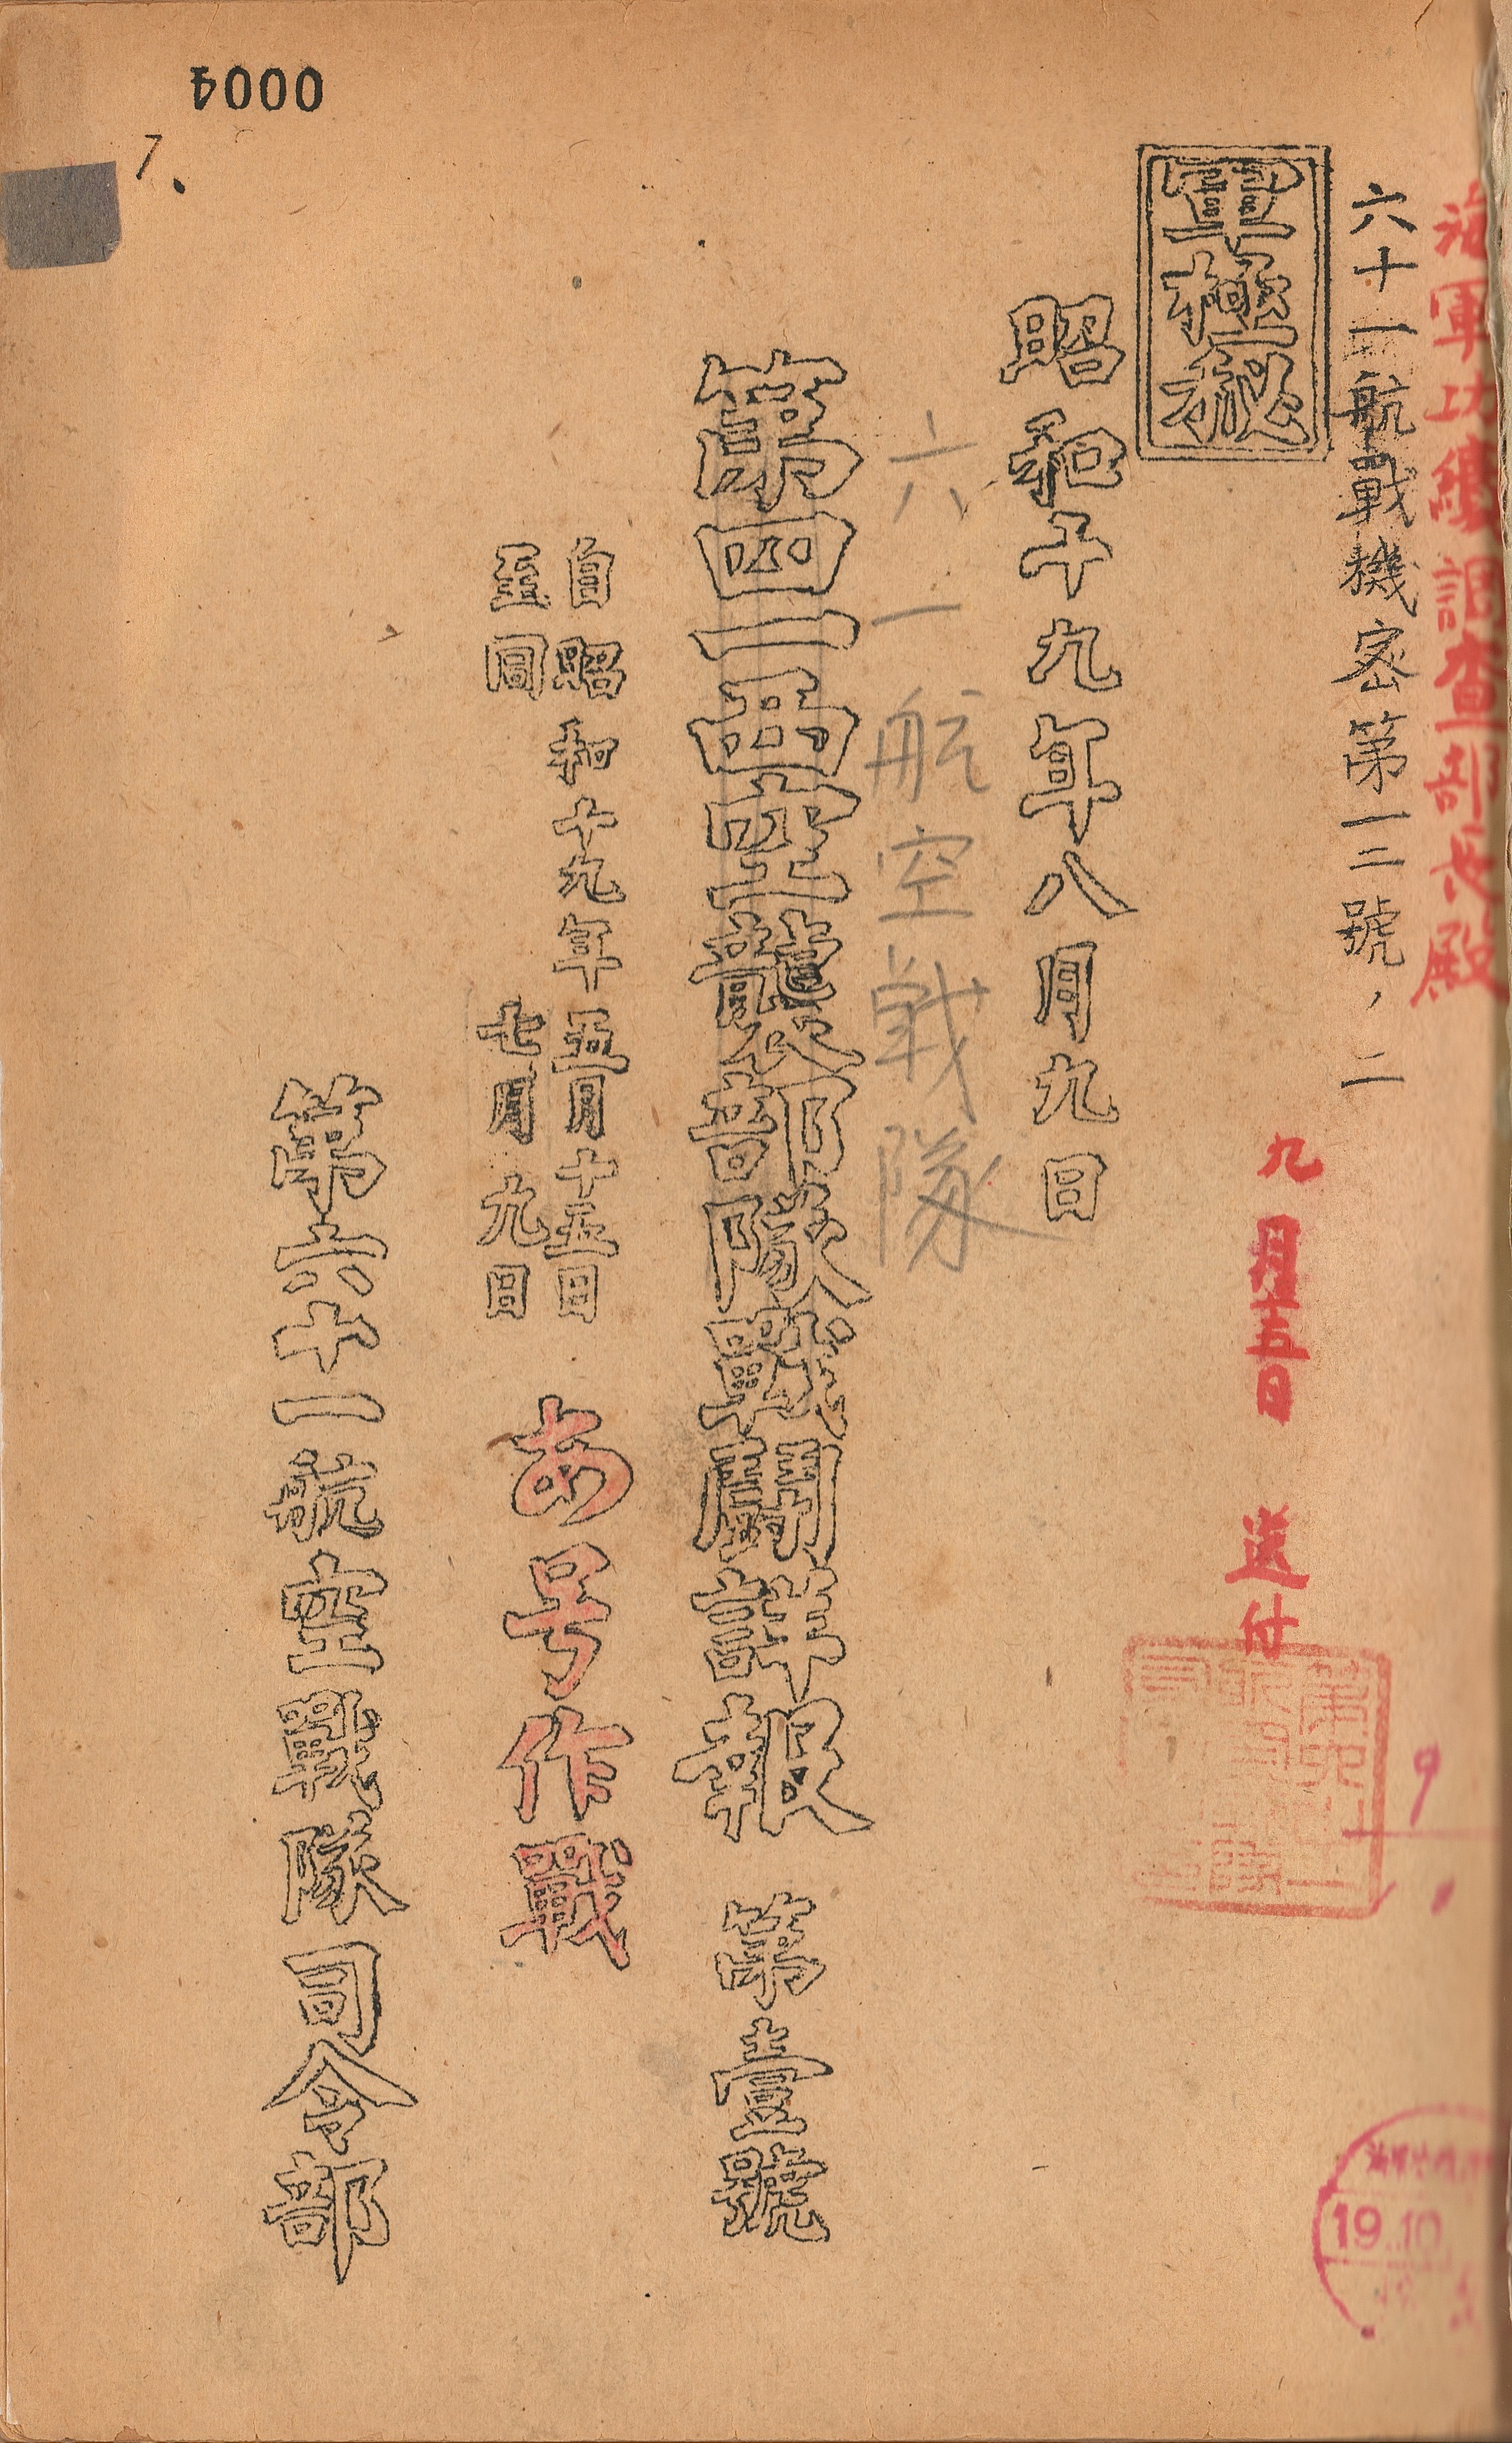 4000
7.
海軍功績調査部長殿
六十一航戰機密第一二號ノ二
九月十五日 送付
軍極秘
昭和十九年八月九日
六一航空戦隊
第四一西空襲部隊戰鬪詳報 第壹號
自昭和十九年五月十五日
至同 七月九日
あ号作戰
第六十一航空戰隊司令部
9
19.10